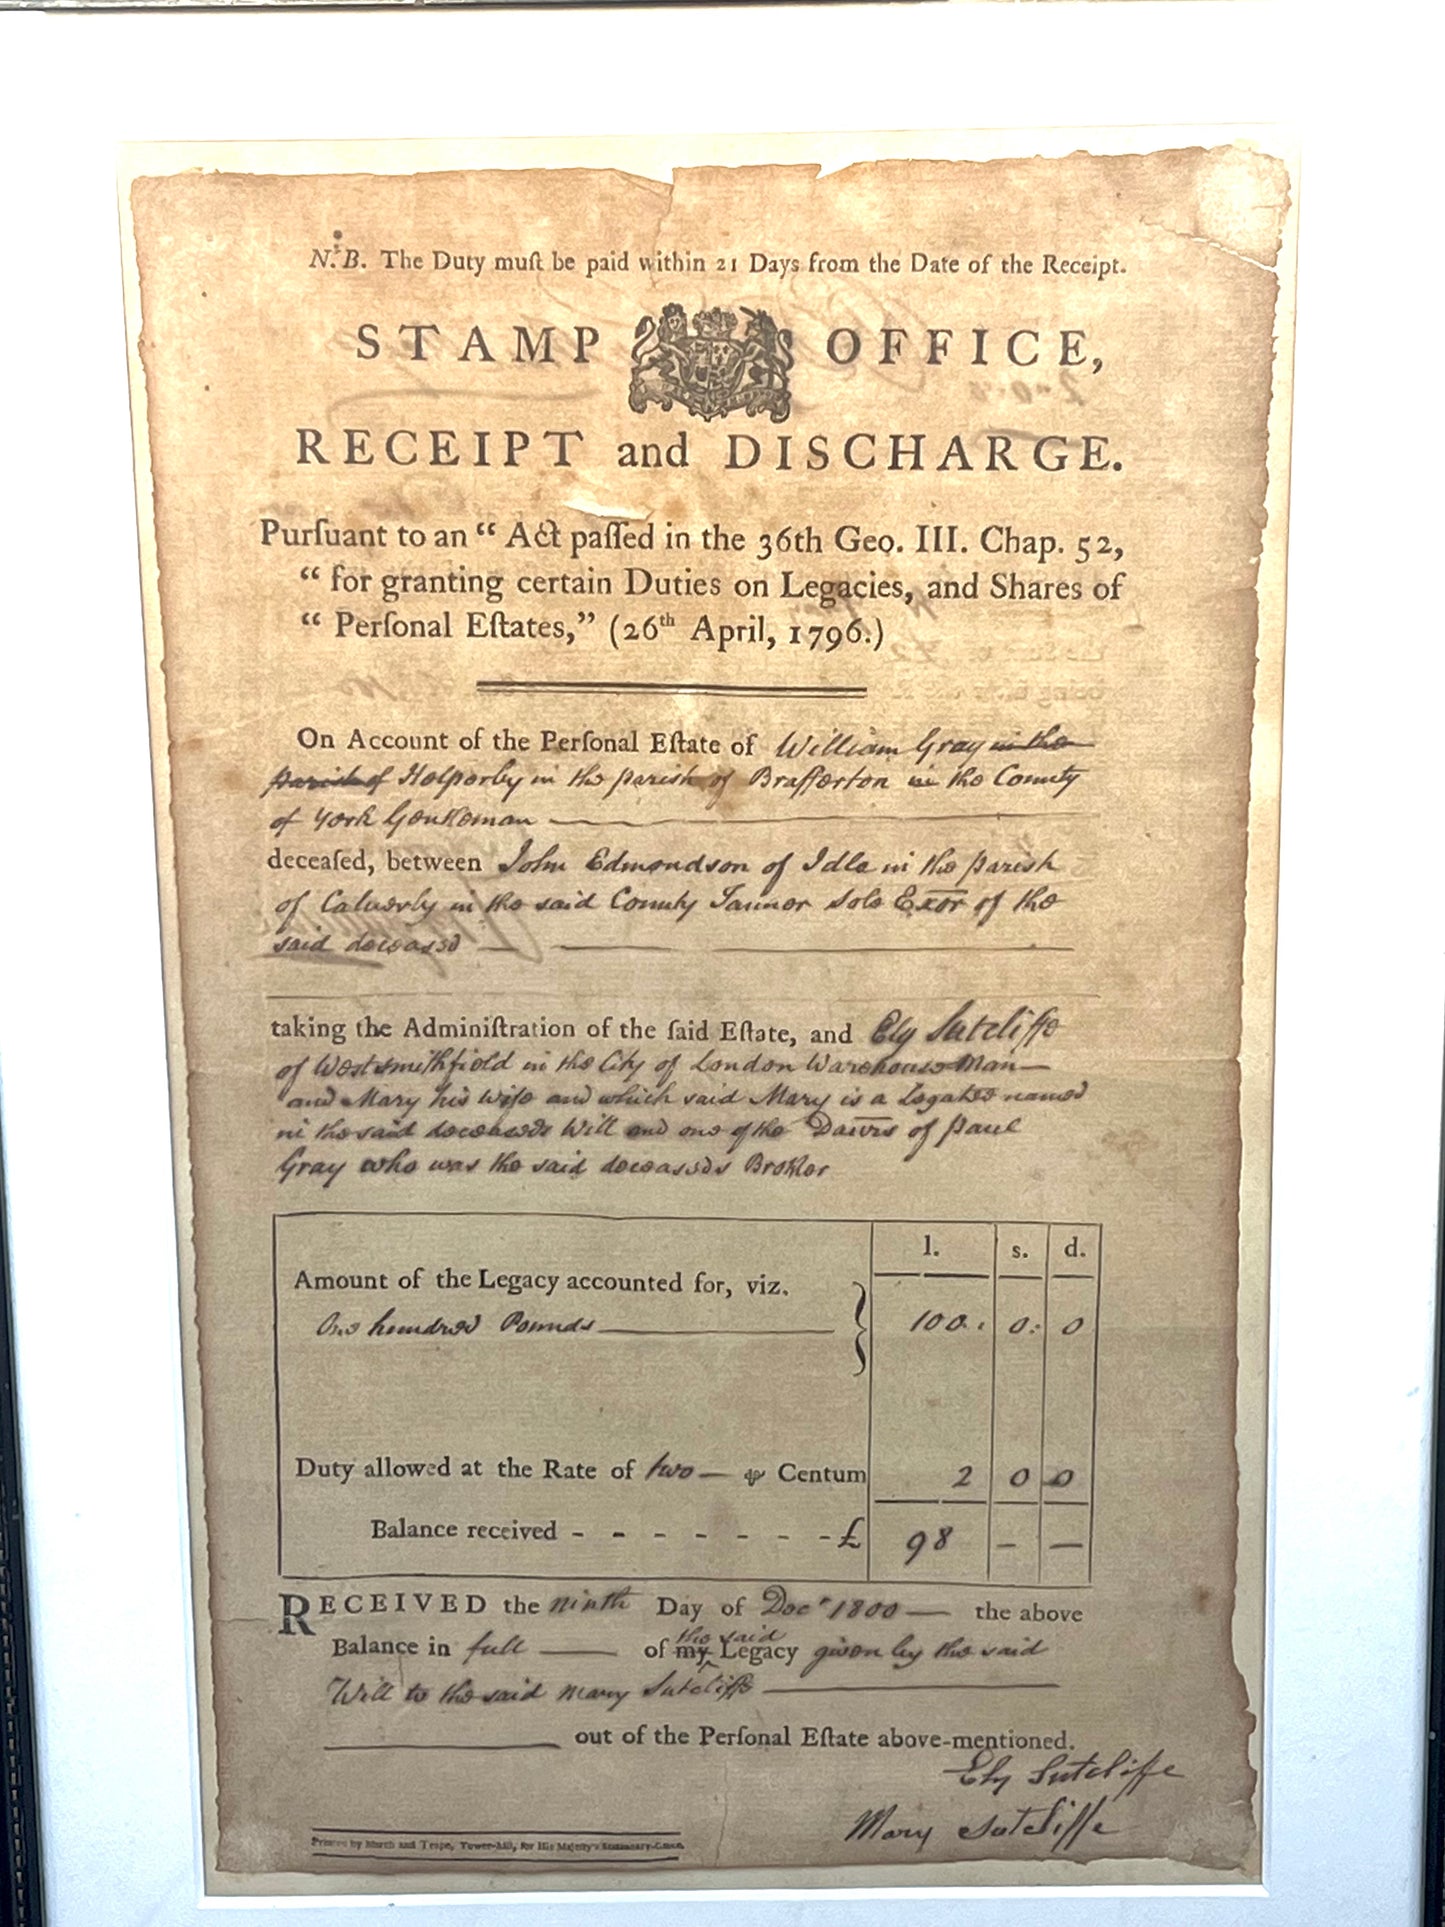 N.B. The Duty muſt be paid within 21 Days from the Date of the Receipt.
STAMP OFFICE,
RECEIPT and DISCHARGE.
Purſuant to an “ Act paſſed in the 36th Geo. III. Chap. 52,
“ for granting certain Duties on Legacies, and Shares of
“ Perſonal Eſtates,” (26th April, 1796.)
On Account of the Perſonal Eſtate of William Gray in the
parish of Helperby in the parish of Brafferton in the County
of York Gentleman
deceaſed, between John Edmondson of Idle in the parish
of Calverly in the said County Tanner Sole Exor of the
said deceased
taking the Adminiſtration of the ſaid Eſtate, and Ely Sutcliffe
of Westsmithfield in the City of London Warehouse Man
and Mary his wife and which said Mary is a Legatee named
in the said deceaseds Will and one of the Dau'rs of Paul
Gray who was the said deceaseds Brother
l. s. d.
Amount of the Legacy accounted for, viz.
One hundred Pounds 100 : 0 : 0
Duty allowed at the Rate of two ⅌ Centum 2 0 0
Balance received - - - - - - - £ 98 — —
RECEIVED the ninth Day of Decr 1800 — the above
the said
Balance in full of my Legacy given by the said
Will to the said Mary Sutcliffe
out of the Perſonal Eſtate above-mentioned.
Ely Sutcliffe
Mary Sutcliffe
Printed by March and Teape, Tower-hill, for His Majeſty's Stationary-Office.